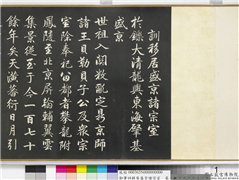 訓移居盛京諸宗室
於鑠大清龍興東海肇基
盛京
世祖入關敉亂定鼎京師
諸王貝勒貝子公及衆宗
室除奉祀留都者攀龍附
鳳隨至北京屏翰輔翼雲
集景從至于今一百七十
餘年矣天潢蕃衍日月引